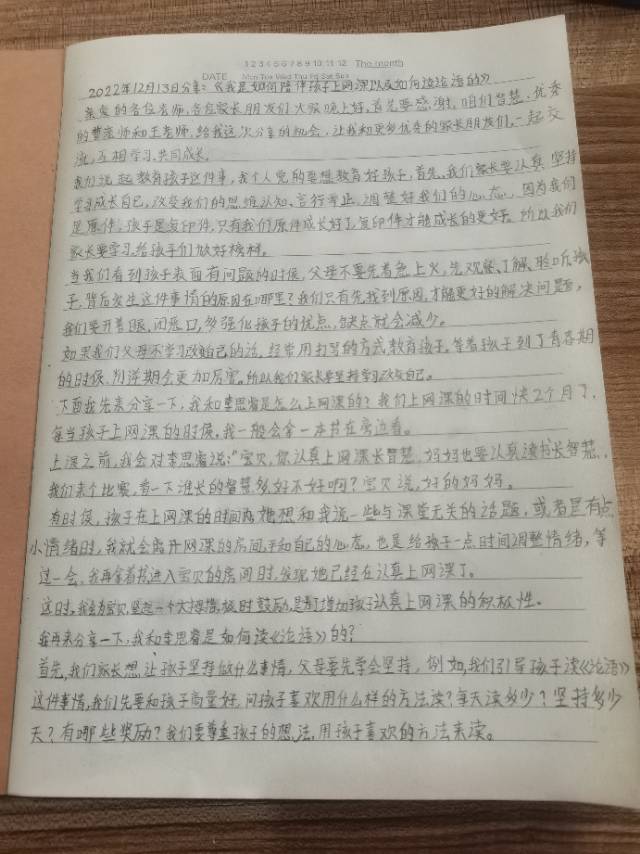 1 2 3 4 5 6 7 8 9 10 11 12 The month
DATE Mon Tue Wed Thu Fri Sat Sun
2022年12月13日分享:《我是如何陪伴孩子上网课以及如何读论语的》
亲爱的各位老师,各位家长朋友们大家晚上好,首先要感谢,咱们智慧、优秀
的曹老师和王老师,给我这次分享的机会,让我和更多优秀的家长朋友们,一起交
流,互相学习,共同成长。
我们说起教育孩子这件事,我个人觉的要想教育好孩子,首先,我们家长要认真坚持
学习成长自己,改变我们的思维认知、言行举止,调整好我们的心态,因为我们
是原件,孩子是复印件,只有我们原件成长好了,复印件才能成长的更好。所以我们
家长要学习,给孩子们做好榜样。
当我们看到孩子表面有问题的时候,父母不要先着急上火,先观察、了解、聆听孩
子,背后发生这件事情的原因在哪里?我们只有先找到原因,才能更好的解决问题,
我们要开善眼,闭恶口,多强化孩子的优点,缺点就会减少。
如果我们父母不学习改变自己的话,经常用打骂的方式教育孩子,等着孩子到了青春期
的时候,叛逆期会更加厉害。所以我们家长要坚持学习改变自己。
下面我先来分享一下,我和李思睿是怎么上网课的?我们上网课的时间快2个月了,
每当孩子上网课的时候,我一般会拿一本书在旁边看。
上课之前,我会对李思睿说:“宝贝,你认真上网课长智慧,妈妈也要认真读书长智慧,
我们来个比赛,看一下谁长的智慧多好不好啊?宝贝说,好的妈妈。
有时侯,孩子在上网课的时间内她想和我说一些与课堂无关的话题,或者是有点
小情绪时,我就会离开网课的房间,平和自己的心态,也是给孩子一点时间调整情绪,等
过一会,我再拿着书进入宝贝的房间时,发现她已经在认真上网课了。
这时,我会为宝贝竖起一个大拇指,及时鼓励,是为了增加孩子认真上网课的积极性。
我再来分享一下,我和李思睿是如何读《论语》的?
首先,我们家长想让孩子坚持做什么事情,父母要先学会坚持,例如,我们引导孩子读《论语》
这件事情,我们先要和孩子商量好,问孩子喜欢用什么样的方法读?每天读多少?坚持多少
天?有哪些奖励?我们要尊重孩子的想法,用孩子喜欢的方法来读。